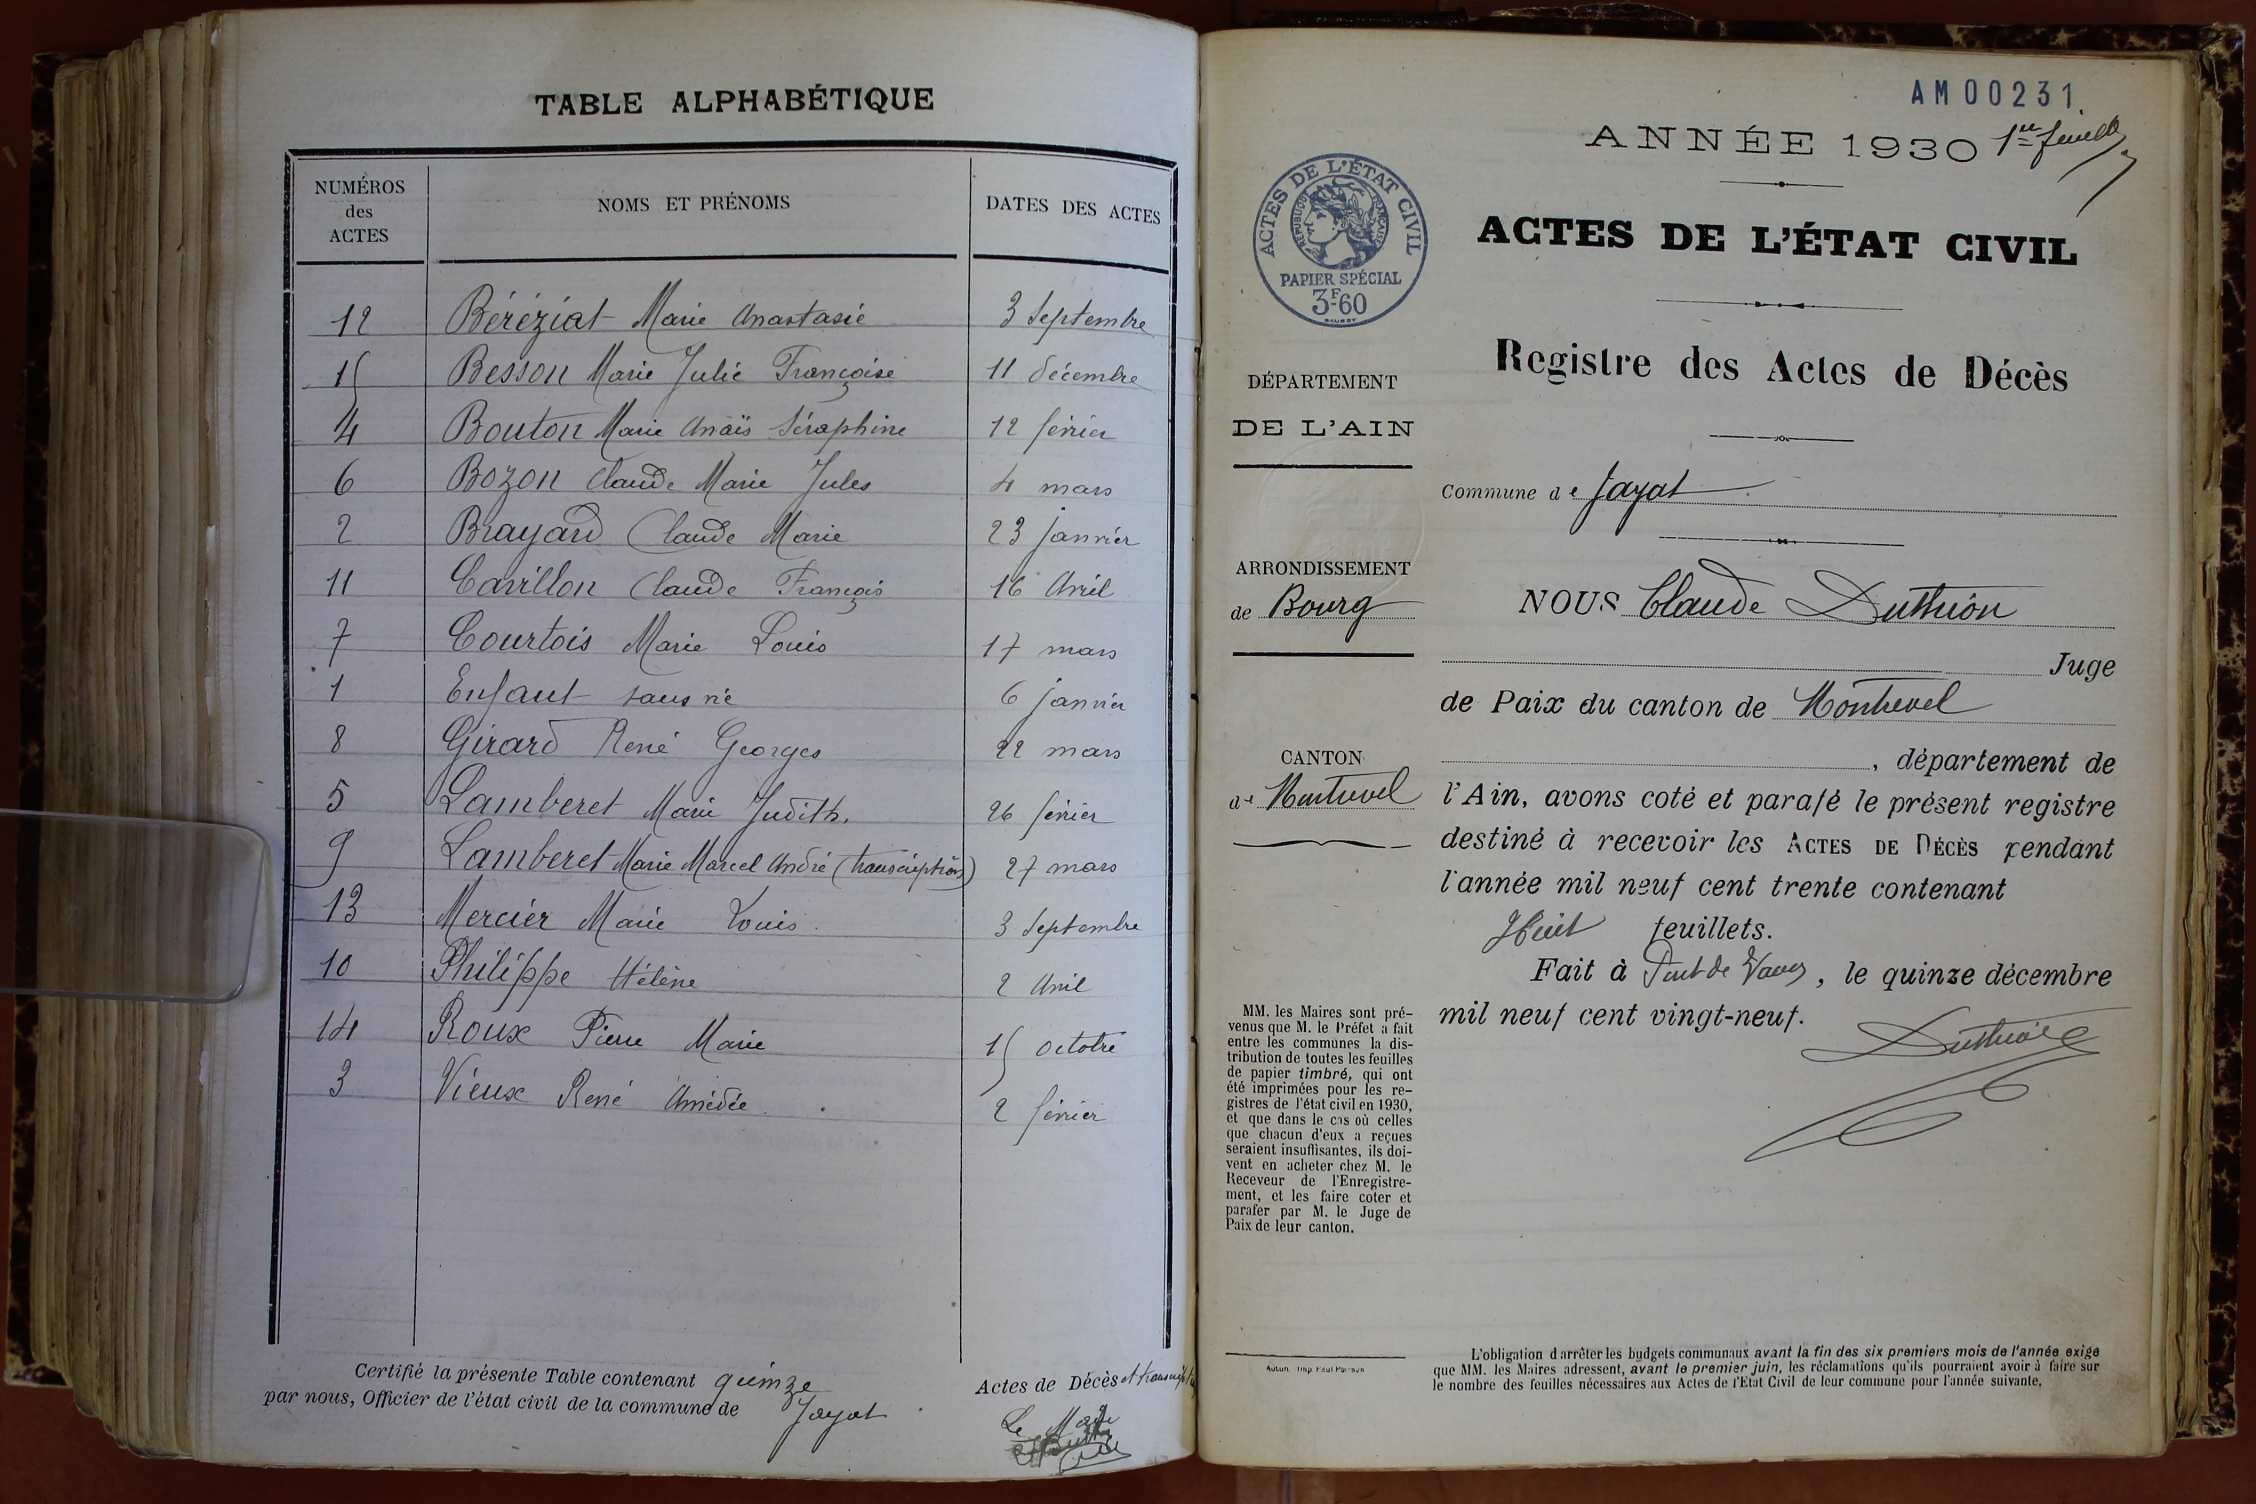 TABLE ALPHABÉTIQUE
NUMÉROS
des
ACTES
NOMS ET PRÉNOMS
DATES DES ACTES
12 Béréziat Marie Anastasie 3 Septembre
15 Besson Marie Julie Françoise 11 décembre
4 Bouton Marie Anaïs Séraphine 12 février
6 Bozon Claude Marie Jules 4 mars
2 Brayard Claude Marie 23 janvier
11 Cavillon Claude François 16 Avril
7 Courtois Marie Louis 17 mars
1 Enfant sans vie 6 janvier
8 Girard René Georges 22 mars
5 Lamberet Marie Judith. 26 février
9 Lamberet Marie Marcel André (transcription) 27 mars
13 Mercier Marie Louis 3 Septembre
10 Philippe Hélène 2 Avril
14 Roux Pierre Marie 15 octobre
3 Vieux René Amédée 2 février
Certifié la présente Table contenant quinze Actes de Décès et transcription
par nous, Officier de l'état civil de la commune de Jayat
Le Maire
AM00231
ANNÉE 1930 1re feuille
ACTES DE L'ÉTAT CIVIL
RÉPUBLIQUE FRANÇAISE
PAPIER SPÉCIAL
3F-60
ACTES DE L'ÉTAT CIVIL
Registre des Actes de Décès
DÉPARTEMENT
DE L'AIN
Commune de Jayat
ARRONDISSEMENT
de Bourg
NOUS Claude Duthion
Juge
de Paix du canton de Montrevel
CANTON
de Montrevel
, département de
l'Ain, avons coté et parafé le présent registre
destiné à recevoir les ACTES DE DÉCÈS pendant
l'année mil neuf cent trente contenant
Huit feuillets.
Fait à Pont de Vaux, le quinze décembre
mil neuf cent vingt-neuf.
Duthion
MM. les Maires sont pré-
venus que M. le Préfet a fait
entre les communes la dis-
tribution de toutes les feuilles
de papier timbré, qui ont
été imprimées pour les re-
gistres de l'état civil en 1930,
et que dans le cas où celles
que chacun d'eux a reçues
seraient insuffisantes, ils doi-
vent en acheter chez M. le
Receveur de l'Enregistre-
ment, et les faire coter et
parafer par M. le Juge de
Paix de leur canton.
Autun. Imp. Paul
L'obligation d'arrêter les budgets communaux avant la fin des six premiers mois de l'année exige
que MM. les Maires adressent, avant le premier juin, les réclamations qu'ils pourraient avoir à faire sur
le nombre des feuilles nécessaires aux Actes de l'Etat Civil de leur commune pour l'année suivante.